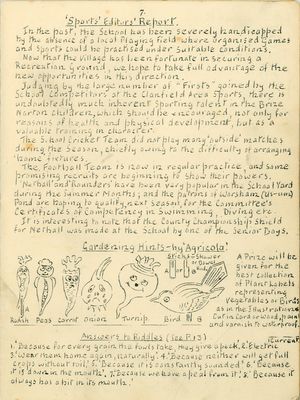 7.
'Sports' Editors' Report.
In the past, the School has been severely handicapped
by the absence of a local Playing field where organised Games
and Sports could be practised under suitable conditions.
Now that the village has been fortunate in securing a
Recreation Ground, we hope to take full advantage of the
new opportunities in this direction.
Judging by the large number of "Firsts" gained by the
School Competitors at the Clanfield Area Sports, there is
undoubtedly much inherent Sporting talent in the Brize
Norton children, which should be encouraged, not only for
reasons of health and physical development, but as a
valuable training in character.
The School Cricket Team did not play many 'outside' matches
during the season, chiefly owing to the difficulty of arranging
'home' fixtures.
The Football Team is now in regular practice, and some
promising recruits are beginning to show their powers.
Netball and Rounders have been very popular in the School Yard
during the Summer Months; and the patrons of Worsham
Pond are hoping to qualify, next season, for the Committee's
Certificates of Competency in Swimming, Diving etc.
It is interesting to note that the County Championship Shield
for Netball was made at the School by one of the Senior Boys.
Gardening Hints-by 'Agricola'
Stick & Skewer
A Prize will be
given for the
best collection
of Plant Labels
representing
Vegetables or Birds
as in the Illustrations
Cut in card or wood, paint
and varnish to waterproof.
Radish Peas Carrot Onion Turnip Bird
Answers to Riddles (See P.13)
1. 'Because for every grain the fowls take, they give a peck.' 2. 'Electric
3. 'Wear them home again, naturally.' 4. 'Because neither will get full
crops without roil.' 5. 'Because it is constantly sounded.' 6. 'Because
it is down in the mouth.' 7. 'Because we have a peal from it.' 8. 'Because it
always has a bit in its mouth.'